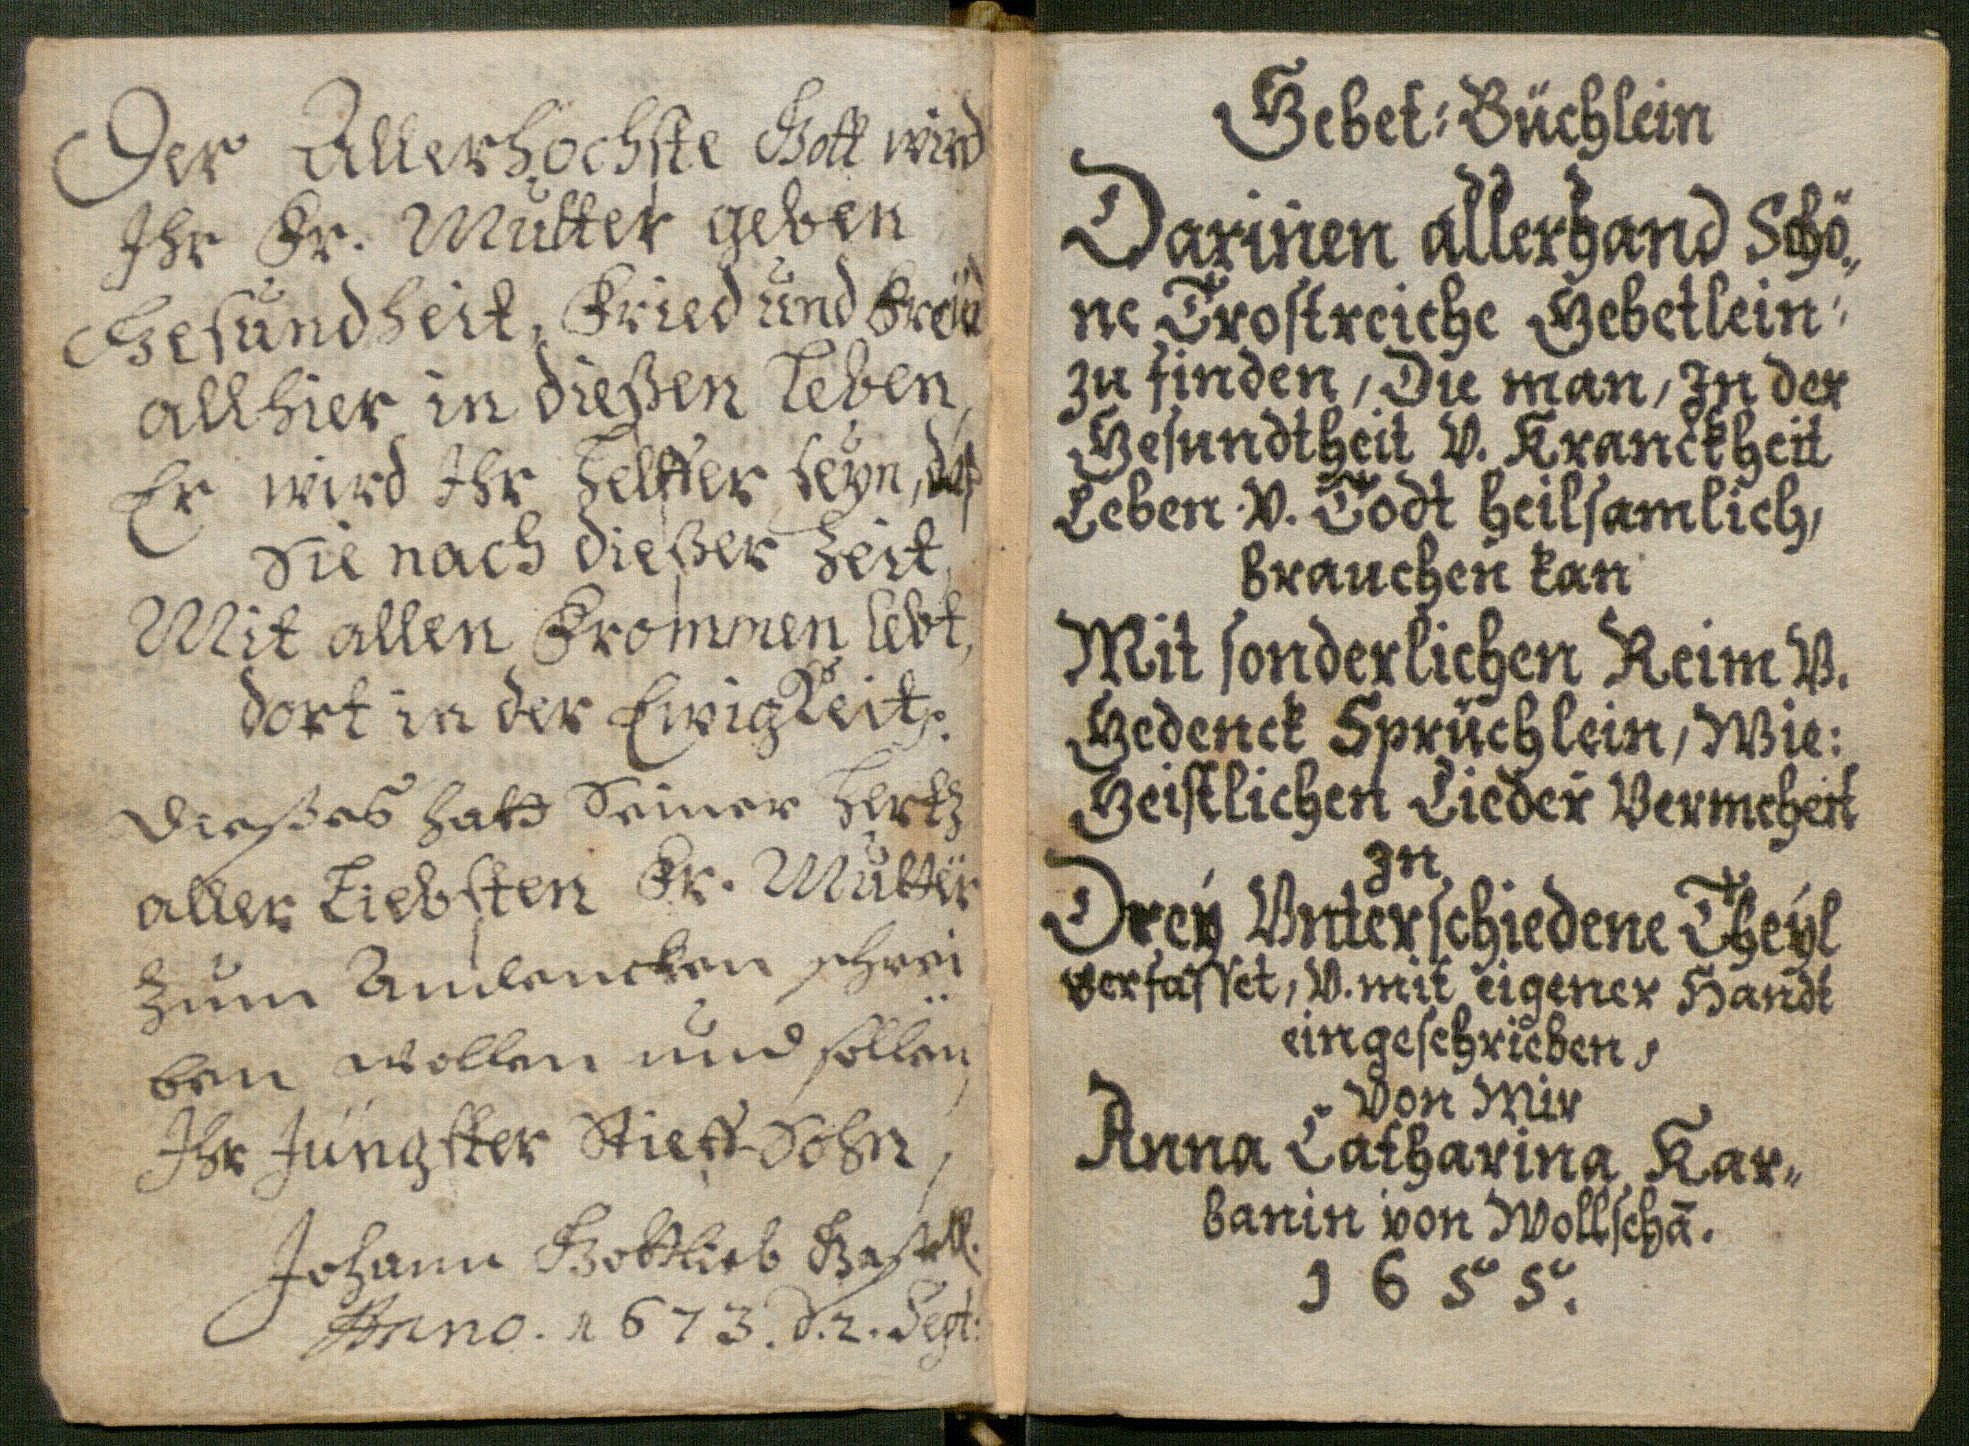 Der Allerhöchste Gott wird
Ihr Fr. Mutter geben
Gesundheit, Fried und Freud
allhier in dießen Leben,
Er wird Ihr Helffer seyn, daß
Sie nach dießer Zeit,
Mit allen Frommen lebt,
dort in der Ewigkeit.
Dießes hatt Seiner Hertz
aller Liebsten Fr. Mutter
zum Andencken schrei
ben wollen und sollen,
Ihr Jüngster Stieff-Sohn,
Johann Gottlieb
Anno. 1673. d. 2. Sept:
Gebet-Büchlein
Darinen allerhand Schö„
ne Trostreiche Gebetlein
zu finden, Die man, In der
Gesundtheit V. Kranckheit
Leben V. Todt heilsamlich,
brauchen kan
Mit sonderlichen Reim V.
Gedenck Sprüchlein, Wie:
Geistlichen Lieder Vermehert
In
Dreÿ Vnterschiedene Theÿl
verfasset, V. mit eigener Handt
eingeschrieben,
Von Mir
Anna Catharina Kar„
banin von Wollschā.
1655.